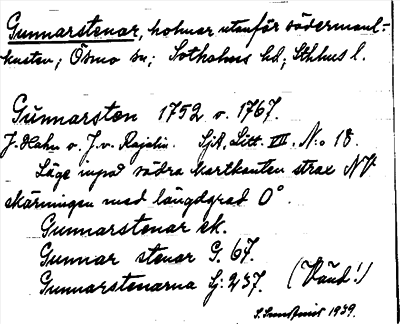 Gunnarstenar, holmar utanför södermanl.-
kusten; Ösmo sn; Sotholms hd; Sthlms l.
Gunnarsten 1752 o. 1767.
J. Hahn o. J. v. Rajalin. SjA. Litt. VIII. N:o 18.
Läge inpå södra kartkanten strax NV
skärningen med längdgrad 0°.
Gunnarstenar ek.
Gunnar stenar G. 67.
Gunnarstenarna Sj: 237. (Vänd!)
1939.